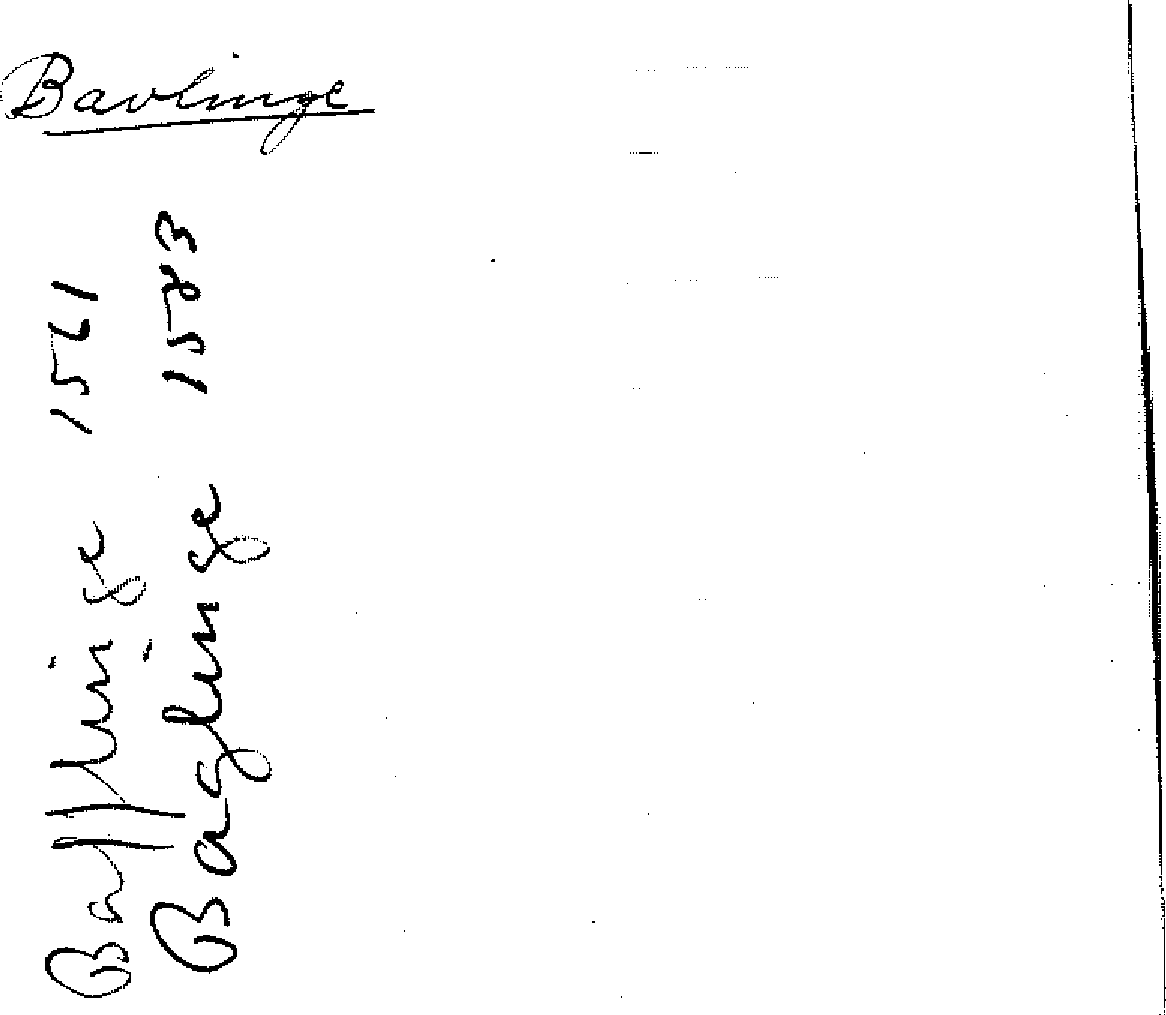 Bavlinge
Bafflinge 1561
Baglinge 1583